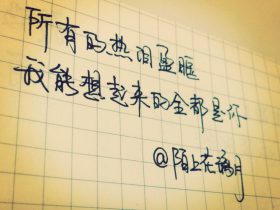 所有的热泪盈眶
我能想起来的全都是你
@陌上在隅月